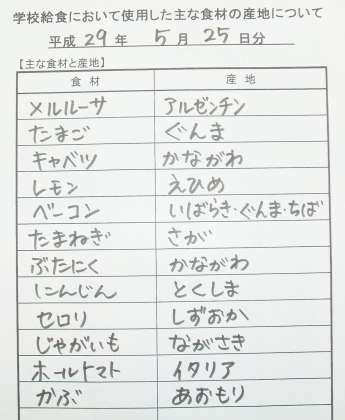 学校給食において使用した主な食材の産地について
平成 29 年 5 月 25 日分
【主な食材と産地】
食材 産地
メルルーサ アルゼンチン
たまご ぐんま
キャベツ かながわ
レモン えひめ
ベーコン いばらき・ぐんま・ちば
たまねぎ さが
ぶたにく かながわ
にんじん とくしま
セロリ しずおか
じゃがいも ながさき
ホールトマト イタリア
かぶ あおもり